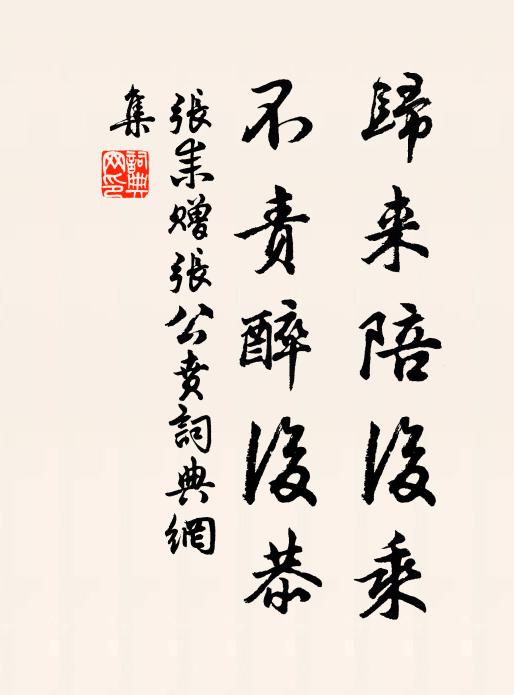 歸来陪後乘
不責醉後恭
張耒贈張公賁詞典網
集
詞典網印